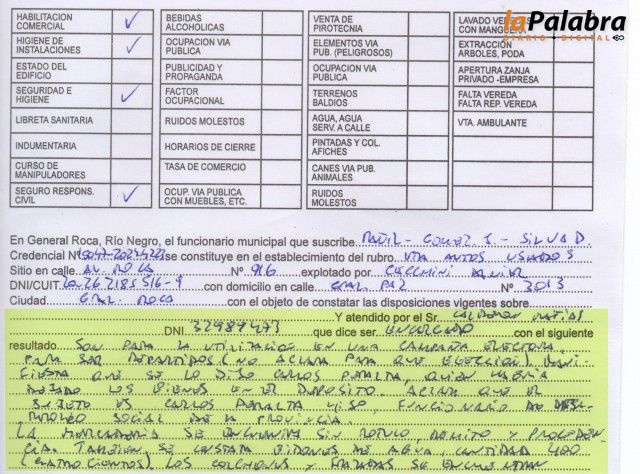 laPalabra
DIARIO DIGITAL
HABILITACION COMERCIAL ✓
HIGIENE DE INSTALACIONES ✓
ESTADO DEL EDIFICIO
SEGURIDAD E HIGIENE ✓
LIBRETA SANITARIA
INDUMENTARIA
CURSO DE MANIPULADORES
SEGURO RESPONS. CIVIL ✓
BEBIDAS ALCOHOLICAS
OCUPACION VIA PUBLICA
PUBLICIDAD Y PROPAGANDA
FACTOR OCUPACIONAL
RUIDOS MOLESTOS
HORARIOS DE CIERRE
TASA DE COMERCIO
OCUP. VIA PUBLICA CON MUEBLES, ETC.
VENTA DE PIROTECNIA
ELEMENTOS VIA PUB. (PELIGROSOS)
OCUPACION VIA PUBLICA
TERRENOS BALDIOS
AGUA, AGUA SERV. A CALLE
PINTADAS Y COL. AFICHES
CANES VIA PUB. ANIMALES
RUIDOS MOLESTOS
LAVADO CON MANGUERA
EXTRACCIÓN ARBOLES, PODA
APERTURA ZANJA PRIVADO -EMPRESA
FALTA VEREDA FALTA REP. VEREDA
VTA. AMBULANTE
En General Roca, Río Negro, el funcionario municipal que suscribe. - GOMEZ S - SILVA D.
Credencial Nº se constituye en el establecimiento del rubro. VTA AUTOS USADOS
Sitio en calle AV. ROCA Nº 916 explotado por CECCHINI JAVIER
DNI/CUIT 20-262185516-9 con domicilio en calle GRAL PAZ Nº 3013
Ciudad GRAL. ROCA con el objeto de constatar las disposiciones vigentes sobre
Y atendido por el Sr. CALDERON MATIAS
DNI 32989477 que dice ser ENCARGADO con el siguiente
resultado SON PARA LA UTILIZACION EN UNA CAMPAÑA ELECTORAL
PARA SER REPARTIDOS (NO ACLARA PARA QUE ELECCION) MANI-
FIESTA QUE SE LO DIJO CARLOS PERALTA, QUIEN HABRIA
DEJADO LOS BIENES EN EL DEPOSITO. ACLARA QUE EL
SUJETO ES CARLOS PERALTA FUNCIONARIO DE DESA-
RROLLO SOCIAL DE LA PROVINCIA.
LA MERCADERIA SE ENCUENTRA SIN ROTULO, REMITO Y PROCEDEN-
CIA. TAMBIEN SE CONSTATA BIDONES DE AGUA, CANTIDAD 400
(CUATROCIENTOS), LOS COLCHONES Y FRAZADAS SE ENCUENTRAN